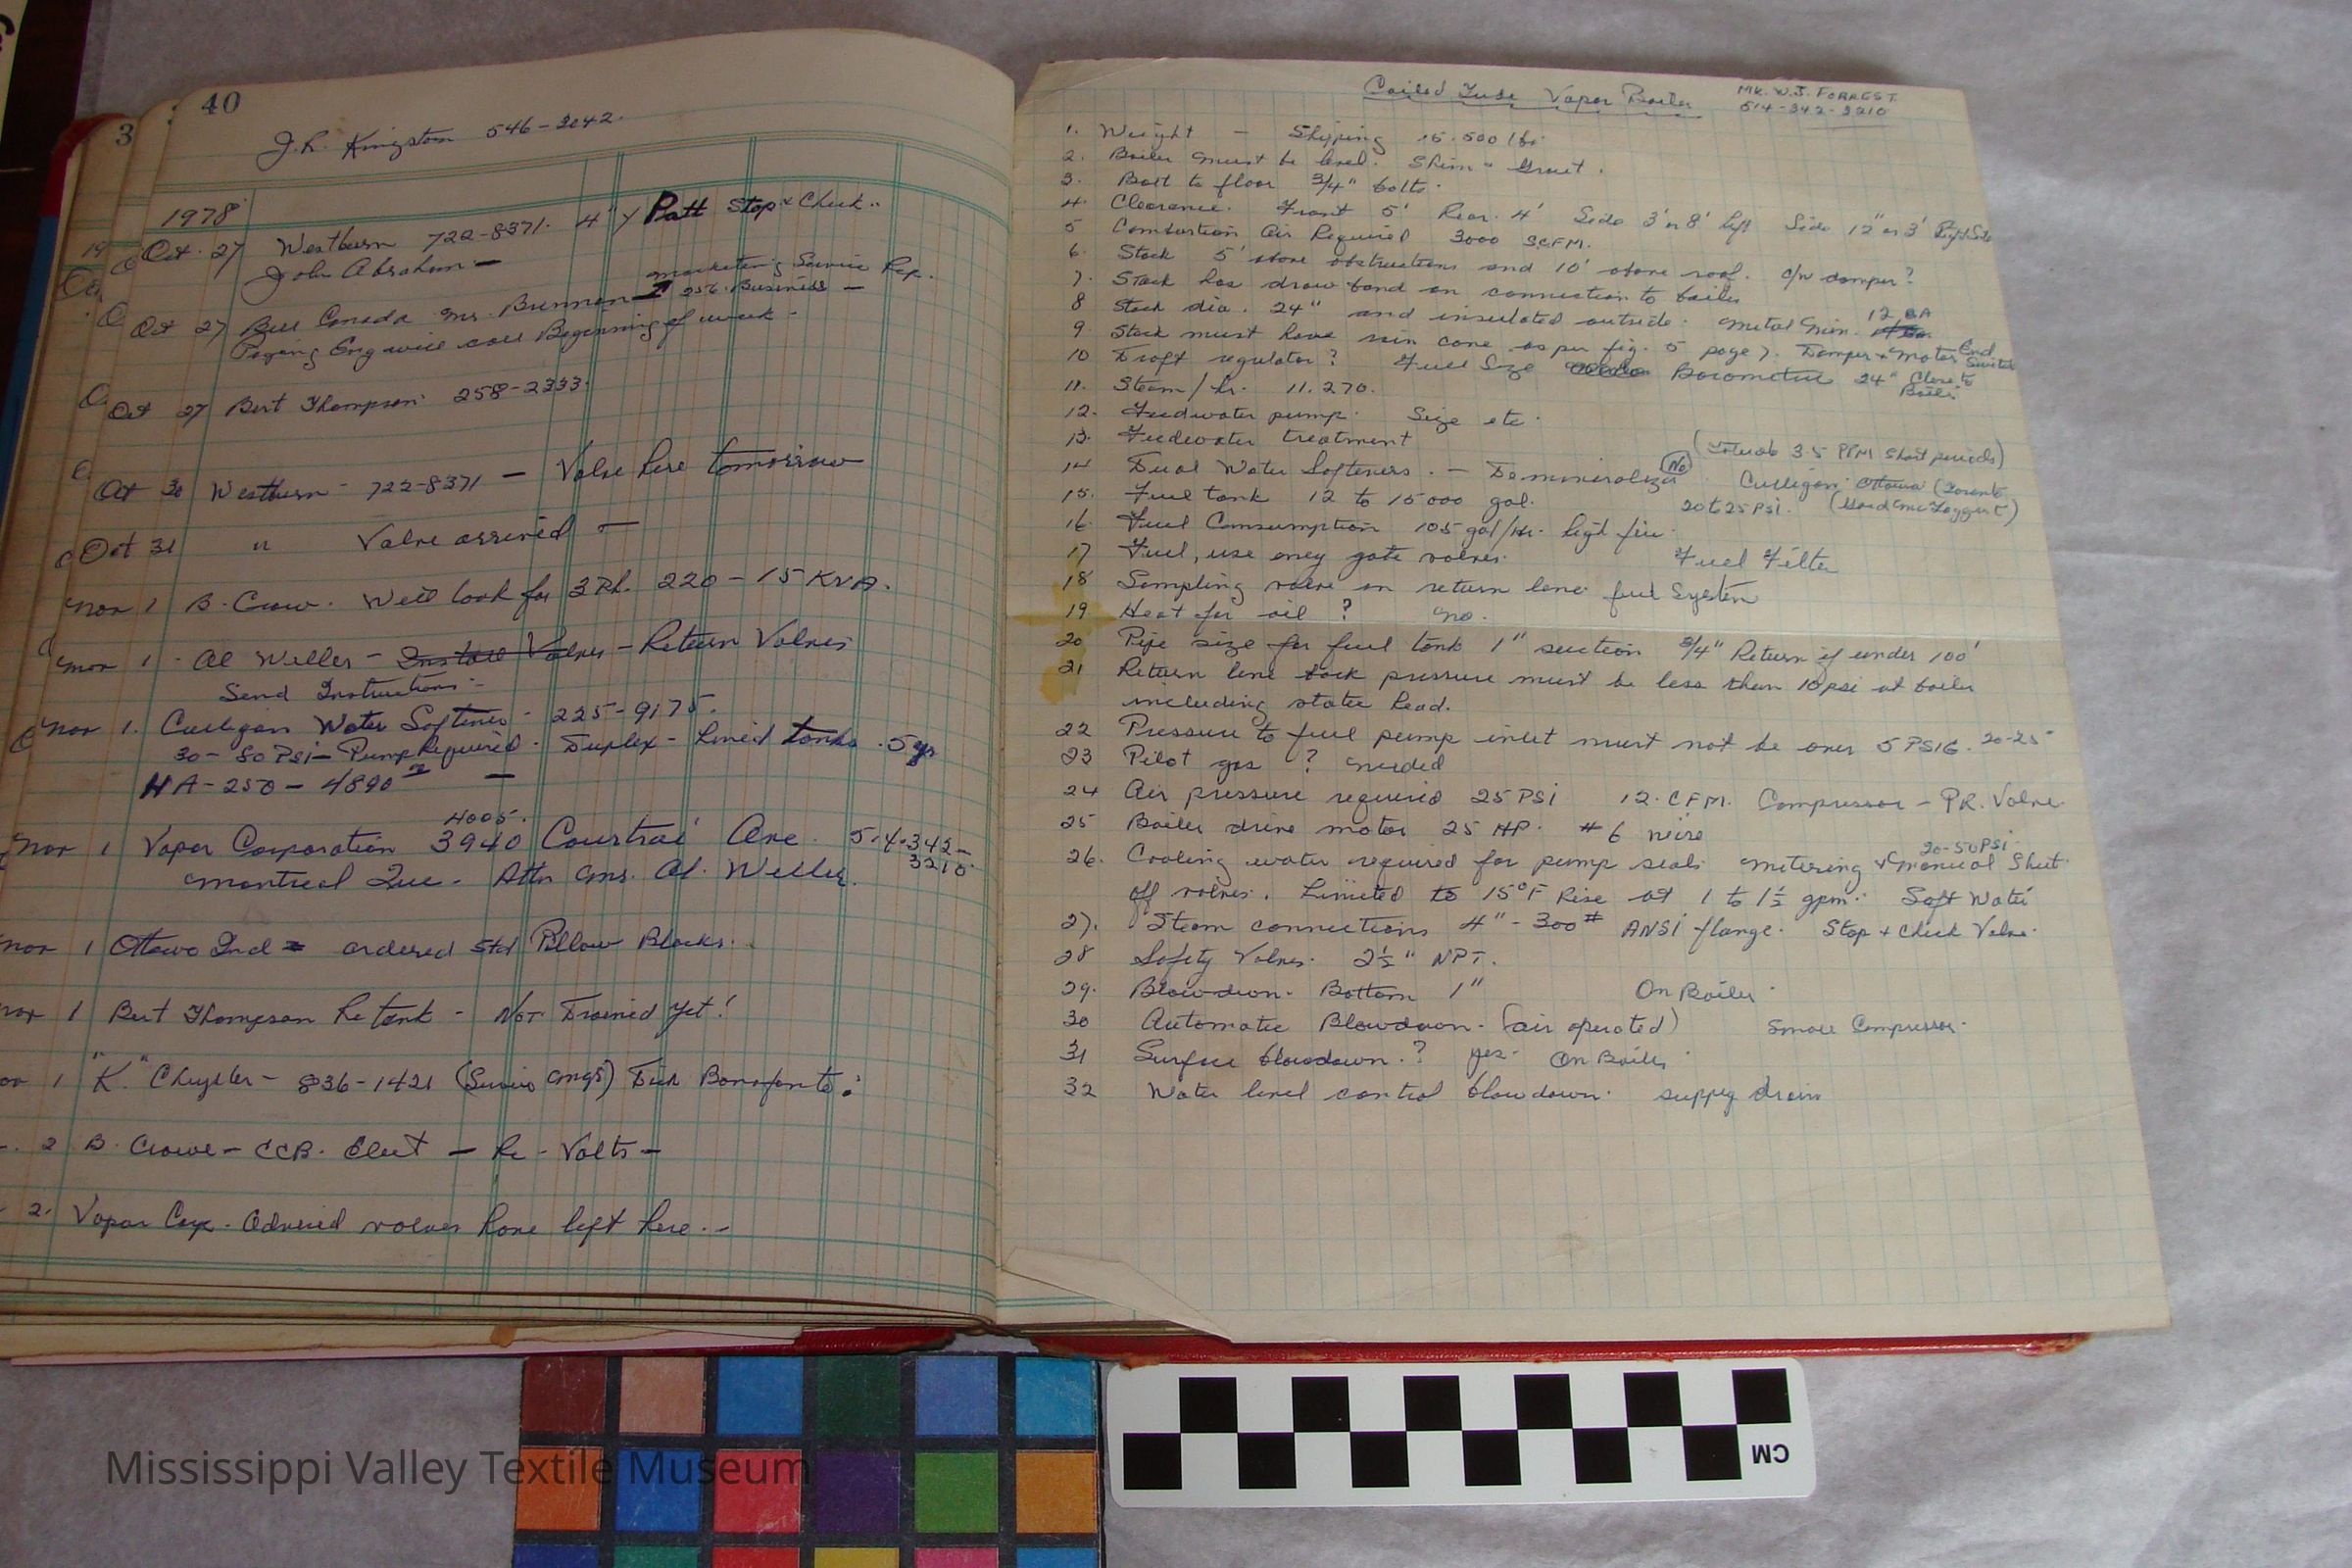 40
3
J.R. Kingston 546-3042.
1978
Oct. 27 Westburn 722-8371. 4" Y Patt Stop & Check..
John Abraham -
Oct 27 Bell Canada Mr. Brennan Marketing Service Rep.
25% Business -
Paging Eng will call Beginning of week -
Oct 27 Bert Thompson 258-2333.
Oct 30 Westburn - 722-8371 - Valve here tomorrow
Oct 31 " Valve arrived -
Nov 1 B. Crow. Will look for 3 Ph. 220 - 15 KVA.
Nov 1 - Al Weller - Install Valves - Return Valves
Send Instructions -
Nov 1. Culligan Water Softener - 225-9175.
30-80 PSI - Pump Required - Duplex - Lined tanks. 5 yrs
HA-250 - 4890 00 -
4005.
Nov 1 Vapor Corporation 3940 Courtrai Ave. 514-342-
3210
Montreal Que. Attn Mr. Al. Weller.
Nov 1 Ottawa Ind - ordered Std Pillow Blocks.
Nov 1 Bert Thompson Re tank - Not Drained Yet!
Nov 1 "K." Chrysler - 836-1421 (Service Mngr)
2 B. Crowe - CCB. Elect - Re - Volts -
2. Vapor Corp. Advised valves have left here. -
Coiled Tube Vapor Boiler
MR. W.J. FORREST
514-342-3210
1. Weight - Shipping 15.500 lbs.
2. Boiler must be level. Shim - Grout.
3. Bolt to floor 3/4" bolts.
4. Clearance. Front 5' Rear. 4' Side 3' or 8' left Side 12" or 3' Right Side
5 Combustion Air Required 3000 SCFM.
6. Stack 5' above obstructions and 10' above roof. c/w damper?
7. Stack has draw band on connection to boiler
8 Stack dia. 24" and insulated outside. Metal Min. 12 GA
9. Stack must have rain cone as per fig. 5 page 7. Damper & motor End Switch
10 Draft regulator? Full Size Barometric 24" Close to Boiler
11. Steam/hr. 11.270.
12. Feedwater pump. Size etc.
13. Feedwater treatment
(3.5 PPM Short periods)
14 Dual Water Softeners. - Demineralizer No Culligan Ottawa (Toronto
15. Fuel tank 12 to 15000 gal. 20 to 25 PSI.
16. Fuel Consumption 105 gal/Hr. high fire.
17 Fuel, use only gate valves. Fuel Filter
18 Sampling valve on return line fuel System
19 Heat for oil? no.
20 Pipe size for fuel tank 1" suction 3/4" Return if under 100'
21 Return line back pressure must be less than 10 psi at boiler
including static head.
22 Pressure to fuel pump inlet must not be over 5 PSIG. 20-25
23 Pilot gas? needed
24 Air pressure required 25 PSI 12. C.F.M. Compressor - P.R. Valve
25 Boiler drive motor 25 HP. #6 wire
20-50 PSI.
26. Cooling water required for pump seals metering & manual Shut
off valves. Limited to 15°F Rise at 1 to 1½ gpm. Soft Water
27. Steam connections 4" - 300# ANSI flange. Stop & Check Valve.
28 Safety Valves. 2½" NPT.
29. Blowdown. Bottom 1" On Boiler.
30 Automatic Blowdown. (air operated) Small Compressor.
31 Surface blowdown.? yes. On Boiler
32 Water level control blowdown. supply drain
CM
Mississippi Valley Textile Museum